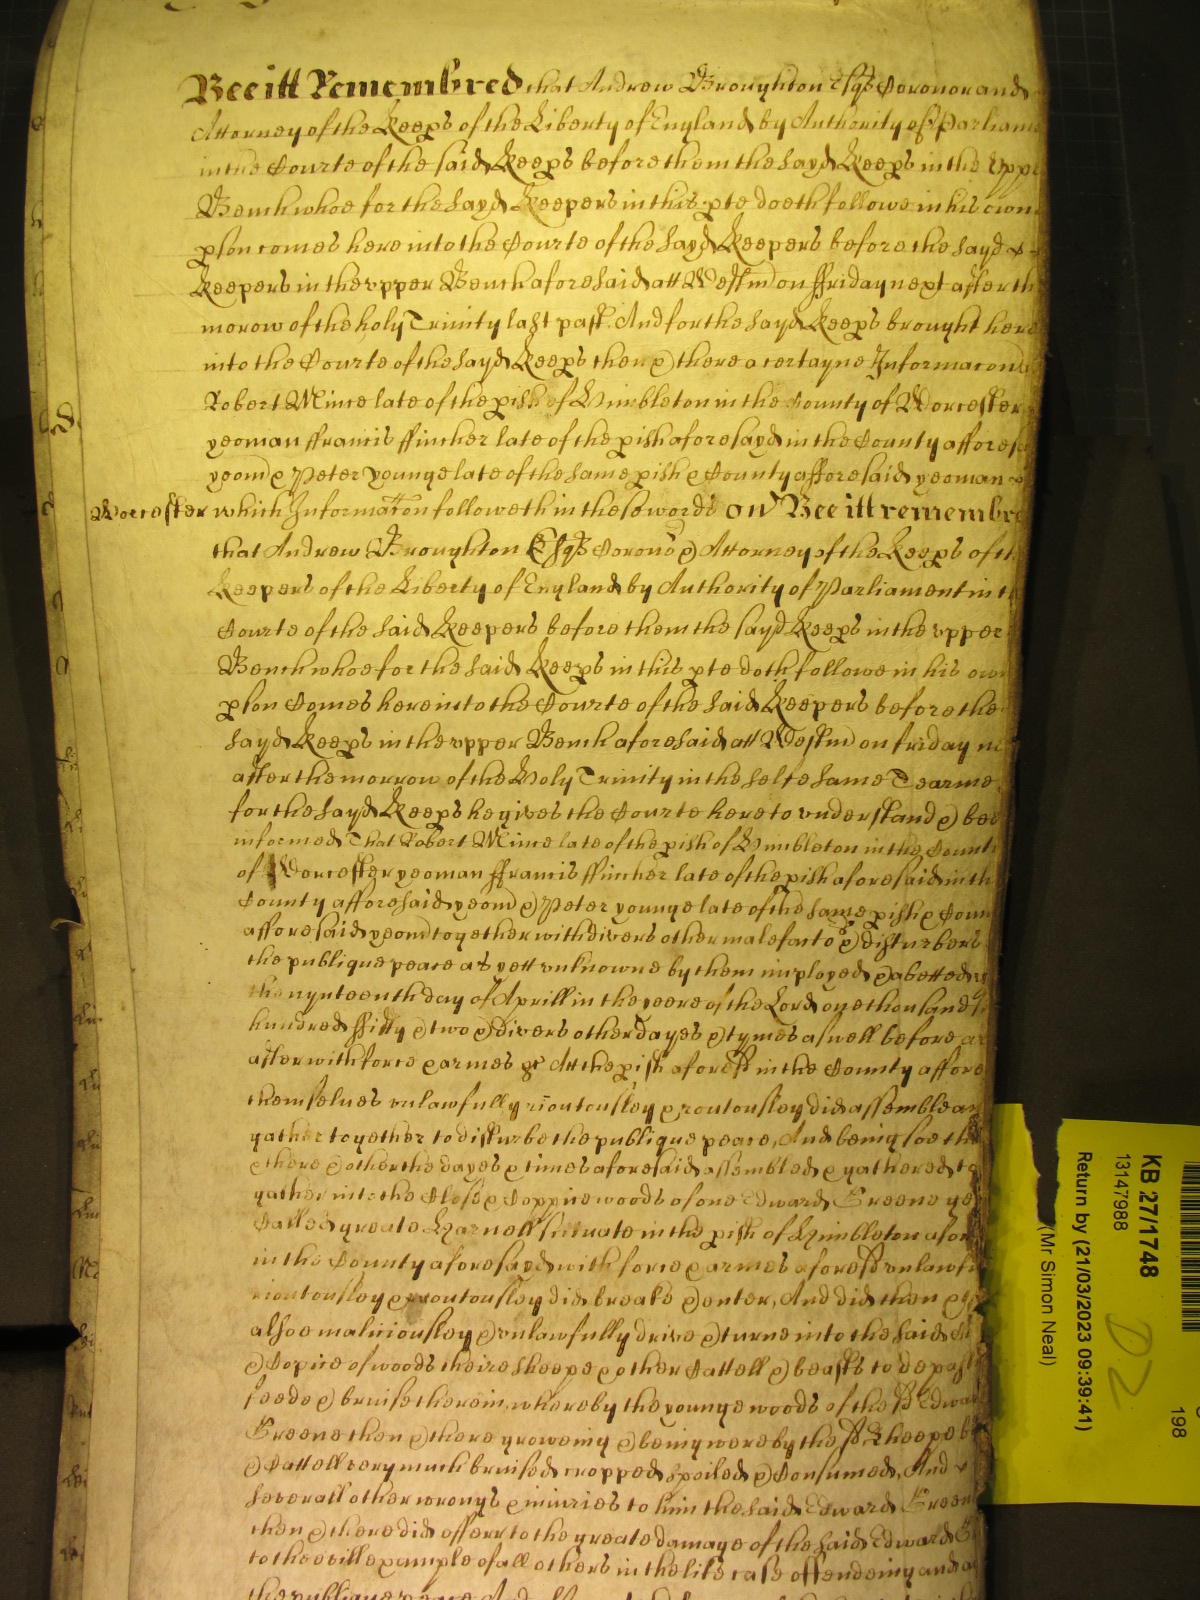 Bee itt Remembred that Andrew Broughton Esqr Coronor and
Attorney of the Keeps of the Liberty of England by Authority of Parliame
in the Courte of the said Keeps before them the sayd Keeps in the Vppe
Bench whoe for the sayd Keepers in this pte doeth followe in his own
pson comes here into the Courte of the sayd Keepers before the sayd
Keepers in the vpper Bench aforesaid att Westm on ffriday next after th
morow of the holy Trinity last past And for the sayd Keeps brought here
into the Courte of the sayd Keeps then & there a certayne Informacon
Robert Mince late of the pish of Himbleton in the County of Worcester
yeoman ffrancis ffincher late of the pish aforesayd in the County afforesa
yeom & Peter younge late of the same pish & County afforesaid yeoman
Worcester which Informacon followeth in these words ss Bee itt remembre
that Andrew Broughton Esqr Corono & Attorney of the Keeps of th
Keepers of the Liberty of England by Authority of Parliament in t
Courte of the said Keepers before them the sayd Keeps in the vpper
Bench whoe for the said Keeps in this pte doth followe in his own
pson Comes here into the Courte of the said Keepers before the
sayd Keeps in the vpper Bench aforesaid att Westm on friday ne
after the morrow of the Holy Trinity in the selfe same Tearme
for the sayd Keeps he gives the Courte here to vnderstand & bee
informed That Robert Mince late of the pish of Himbleton in the Count
of Worcester yeoman ffrancis ffincher late of the pish aforesaid in th
County afforesaid yeom & Peter younge late of the same pish & Coun
afforesaid yeom together with divers other malefacto & disturbers
the publique peace as yett vnknowne by them imployed & abetted
the nynteenth day of Aprill in the yeere of the Lord one thousand
hundred ffifty & two & divers other dayes & tymes aswell before a
after with force & armes &c Att the pish aforesd in the County affore
themselues vnlawfully rioutousley & routousley did assemble an
gather together to disturbe the publique peace, And being soe the
& there & other the dayes & times aforesaid assembled & gathered to
gather into the Close & Coppice woods of one Edward Greene ge
Called greate Harnell scituate in the pish of Himbleton afor
in the County aforesayd with force & armes aforesd vnlawfu
rioutousley & routousley did breake & enter, And did then &
alsoe maliciousley & vnlawfully drive & turne into the said
& Copice of woods theire sheepe & other Cattell & beasts to depast
feede & bruise therein, whereby the younge woods of the sd Edwar
Greene then & there groweing & being were by the sd Sheepe
& Cattell very much bruised cropped spoiled & Consumed, And
severall other wrongs & iniuries to him the said Edward Green
then & there did offerr to the greate damage of the said Edward
to the evill example of all others in the like case offendeing and
the publique peace And
KB 27/1748
13147988
Return by (21/03/2023 09:39:41)
(Mr Simon Neal)
D2
198